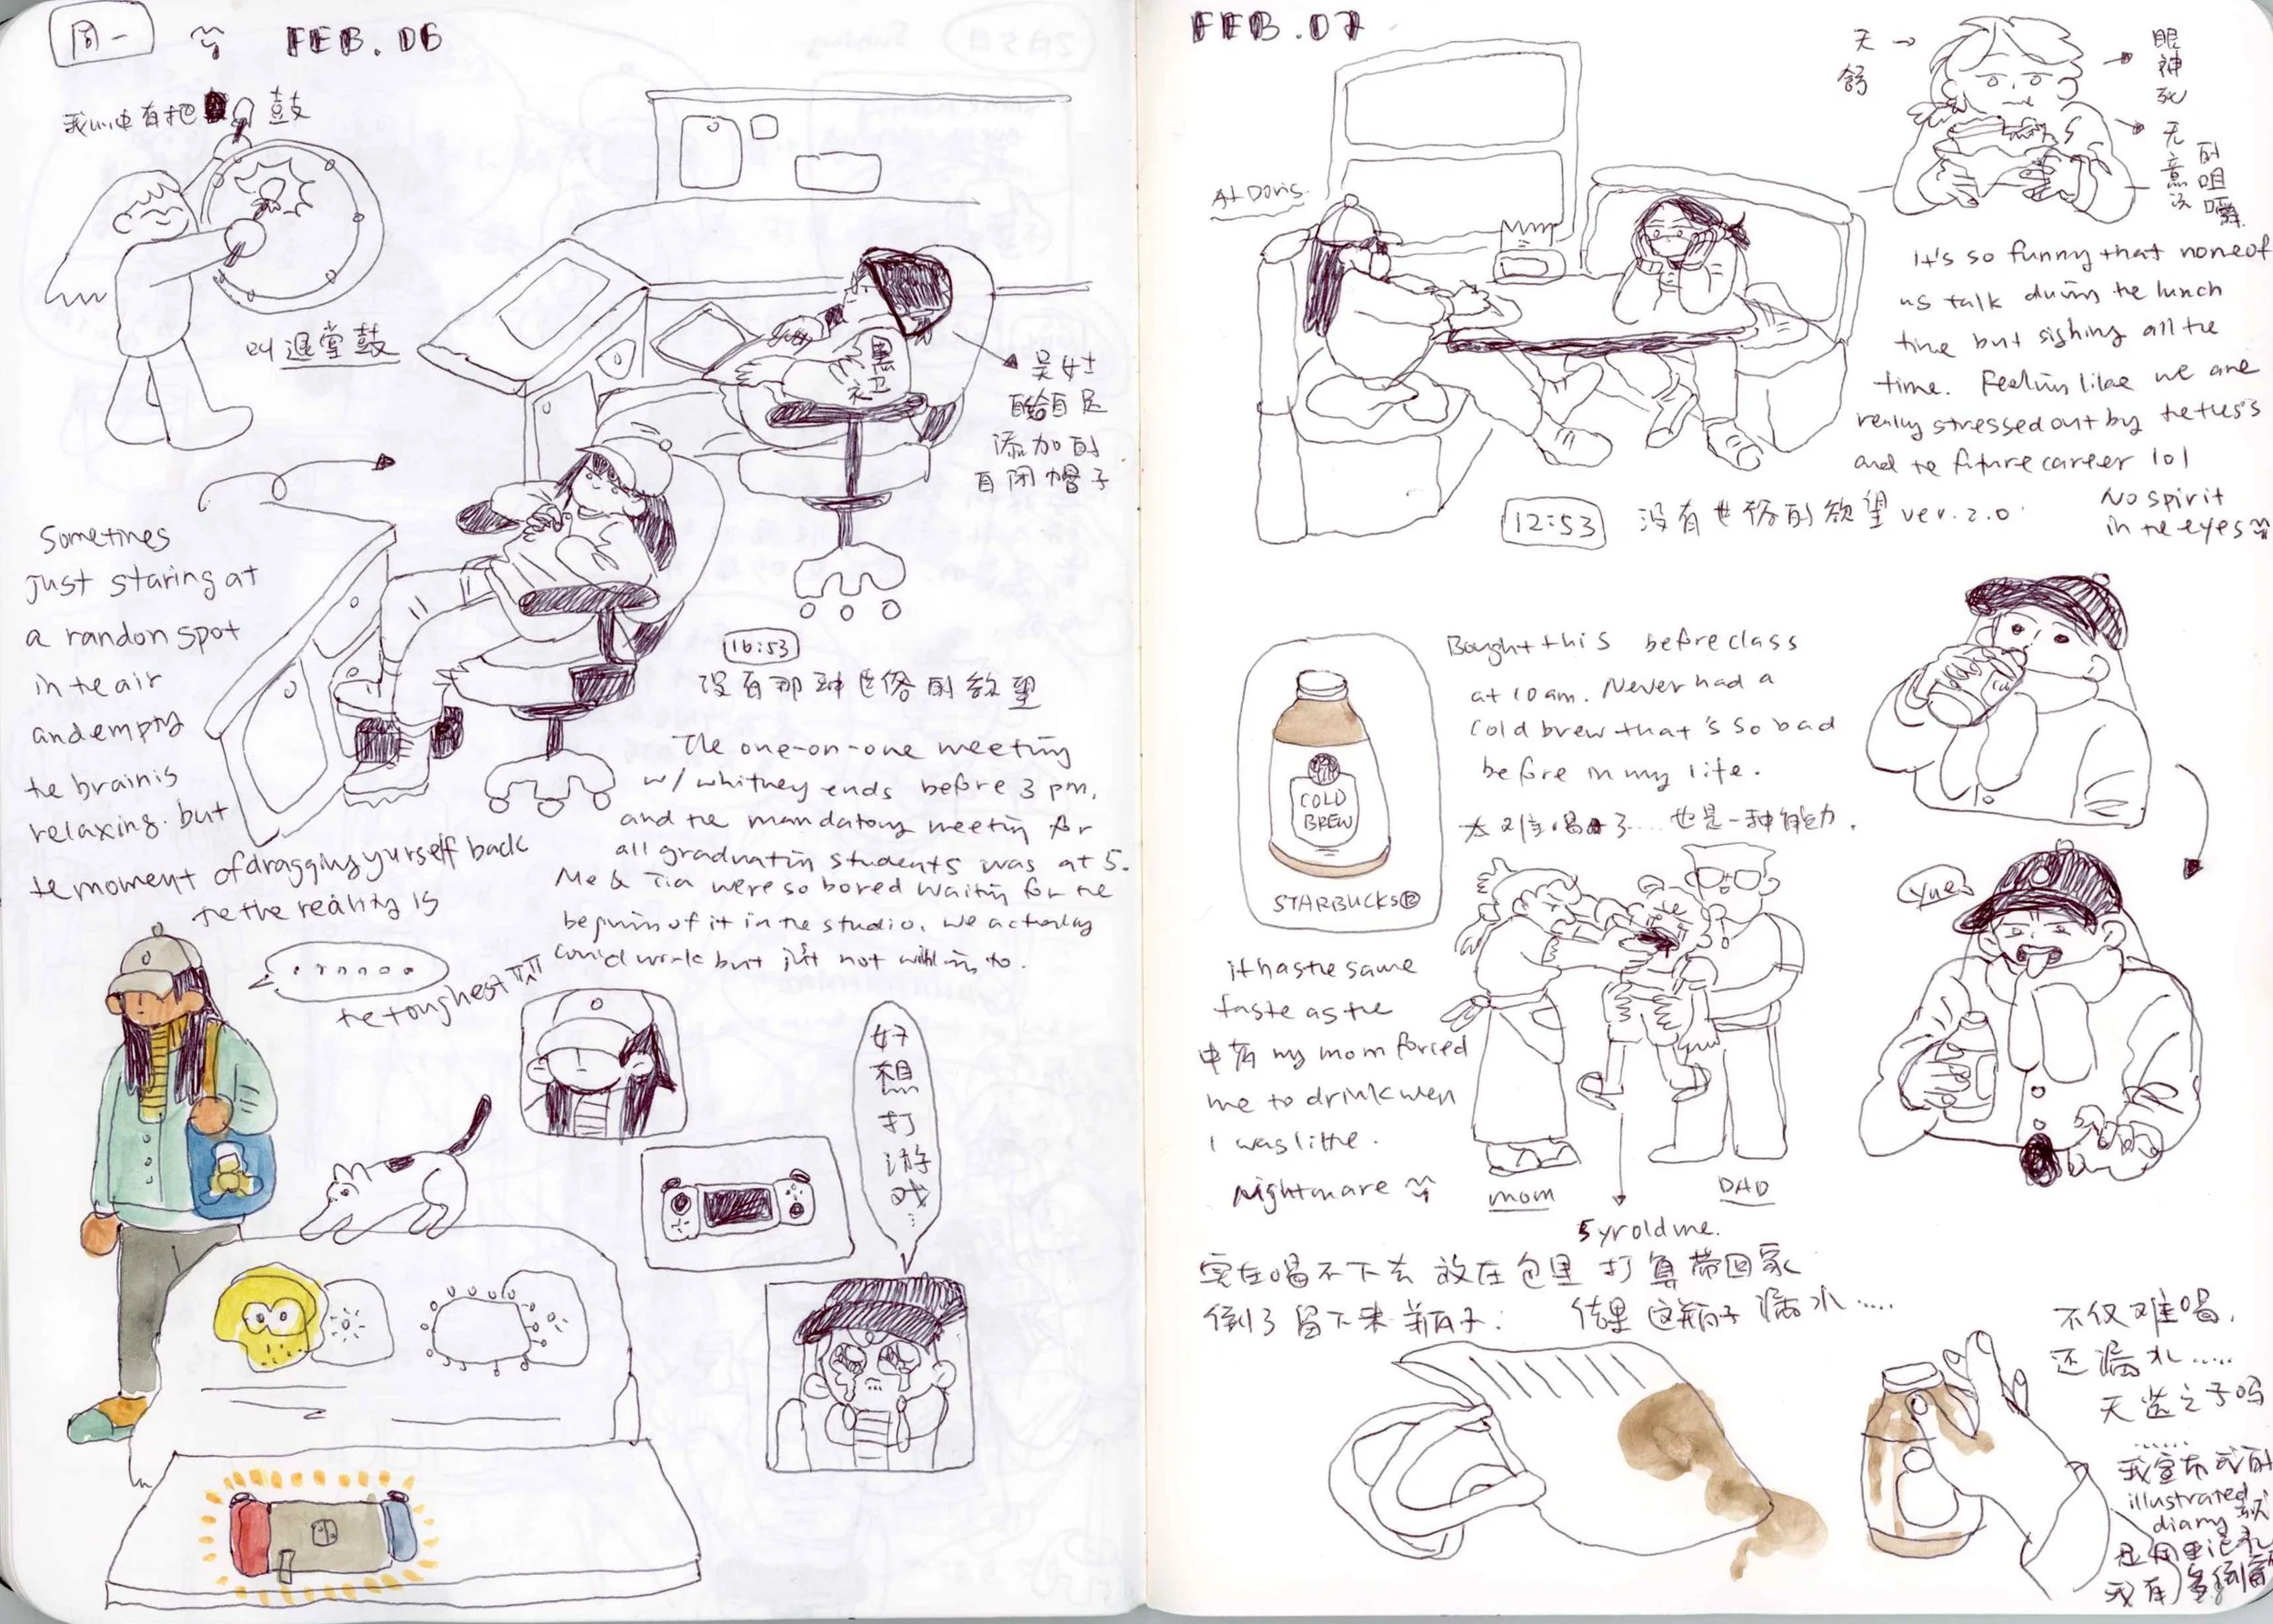 周一
FEB. 06
我心中有把鼓
叫退堂鼓
黑卫衣
吴女士
自给自足
添加的
自闭帽子
Sometimes
just staring at
a random spot
in te air
and empty
te brain is
relaxing. but
te moment of dragging yurself back
te the reality is
te toughest
16:53
没有那种世俗的欲望
The one-on-one meeting
w/ whitney ends before 3 pm.
and the mandatory meetin for
all graduatin students was at 5.
Me & Tia were so bored waitin for the
beginin of it in the studio. we actually
could work but just not willin to.
好
想
打
游
戏
FEB. 07
At Doris.
天舒
眼神死
无意识的咀嚼
it's so funny that none of
us talk durin te lunch
time but sighing all te
time. Feelin like we are
really stressed out by te
and te future career lol
No spirit
in te eyes
12:53
没有世俗的欲望 ver. 2.0
COLD
BREW
STARBUCKS®
Bought this before class
at 10 am. Never had a
cold brew that's so bad
before in my life.
太难喝了.... 也是一种能力.
Yue
it has te same
taste as the
中药 my mom forced
me to drink wen
I was little.
Nightmare
mom
DAD
5 yr old me.
实在喝不下去 放在包里 打算带回家
倒了留下来 瓶子: 结果这瓶子漏水.....
不仅难喝,
还漏水.....
天选之子吗
......
我宣布我的
illustrated
diary
是用来记录
我有多倒霉